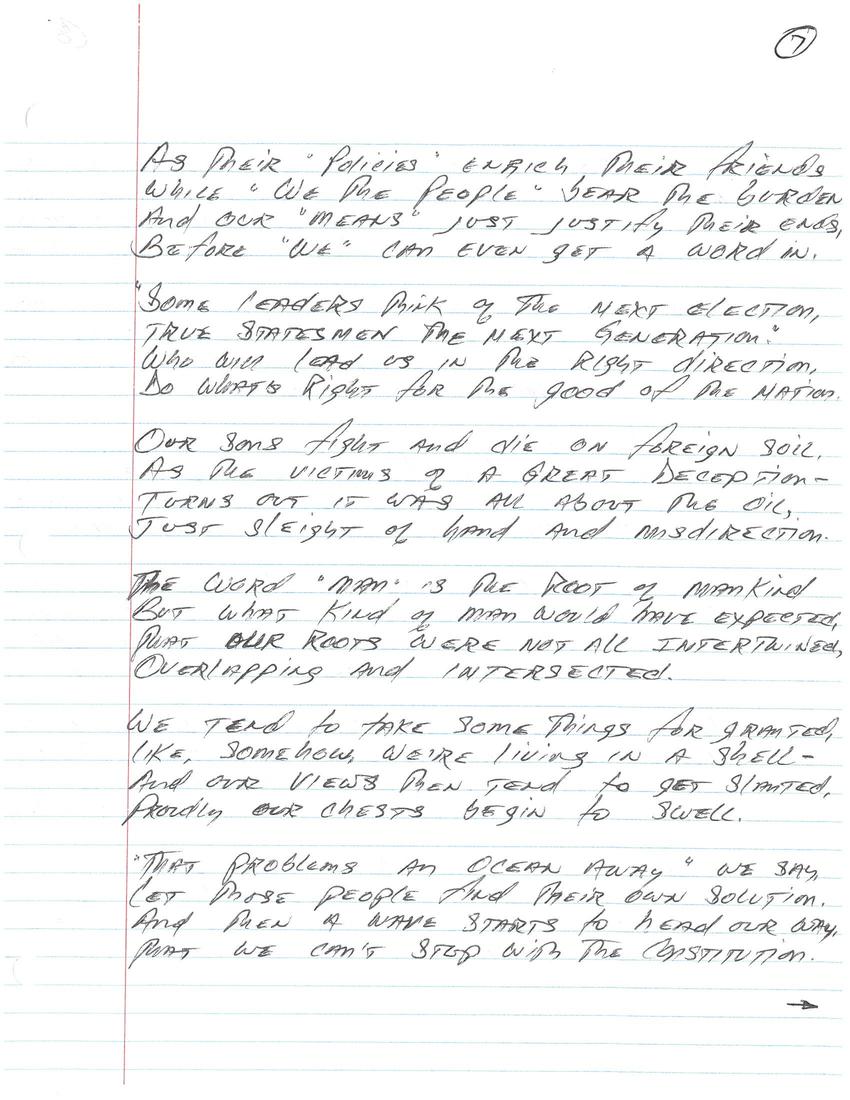 7
As Their "Policies" ENRICH Their friends
While "We The People" bear The burden
And our "MEANS" just justify Their ends,
Before "We" can even get a word in.
"Some leaders Think of The next election,
True statesmen The next generation."
Who will lead us in The right direction,
Do what's right for The good of The Nation.
Our sons fight and die on foreign soil,
As The victims of a great deception -
Turns out it was all about The oil,
Just sleight of hand and misdirection.
The word "Man" is The root of mankind
But what kind of man would have expected,
That our roots were not all intertwined,
Overlapping and intersected.
We tend to take some Things for granted,
Like, somehow, we're living in a shell -
And our views Then tend to get slanted,
Proudly our chests begin to swell.
"That problems an ocean away" we say,
Let Those people find Their own solution.
And Then a wave starts to head our way,
That we can't stop with The Constitution.
→